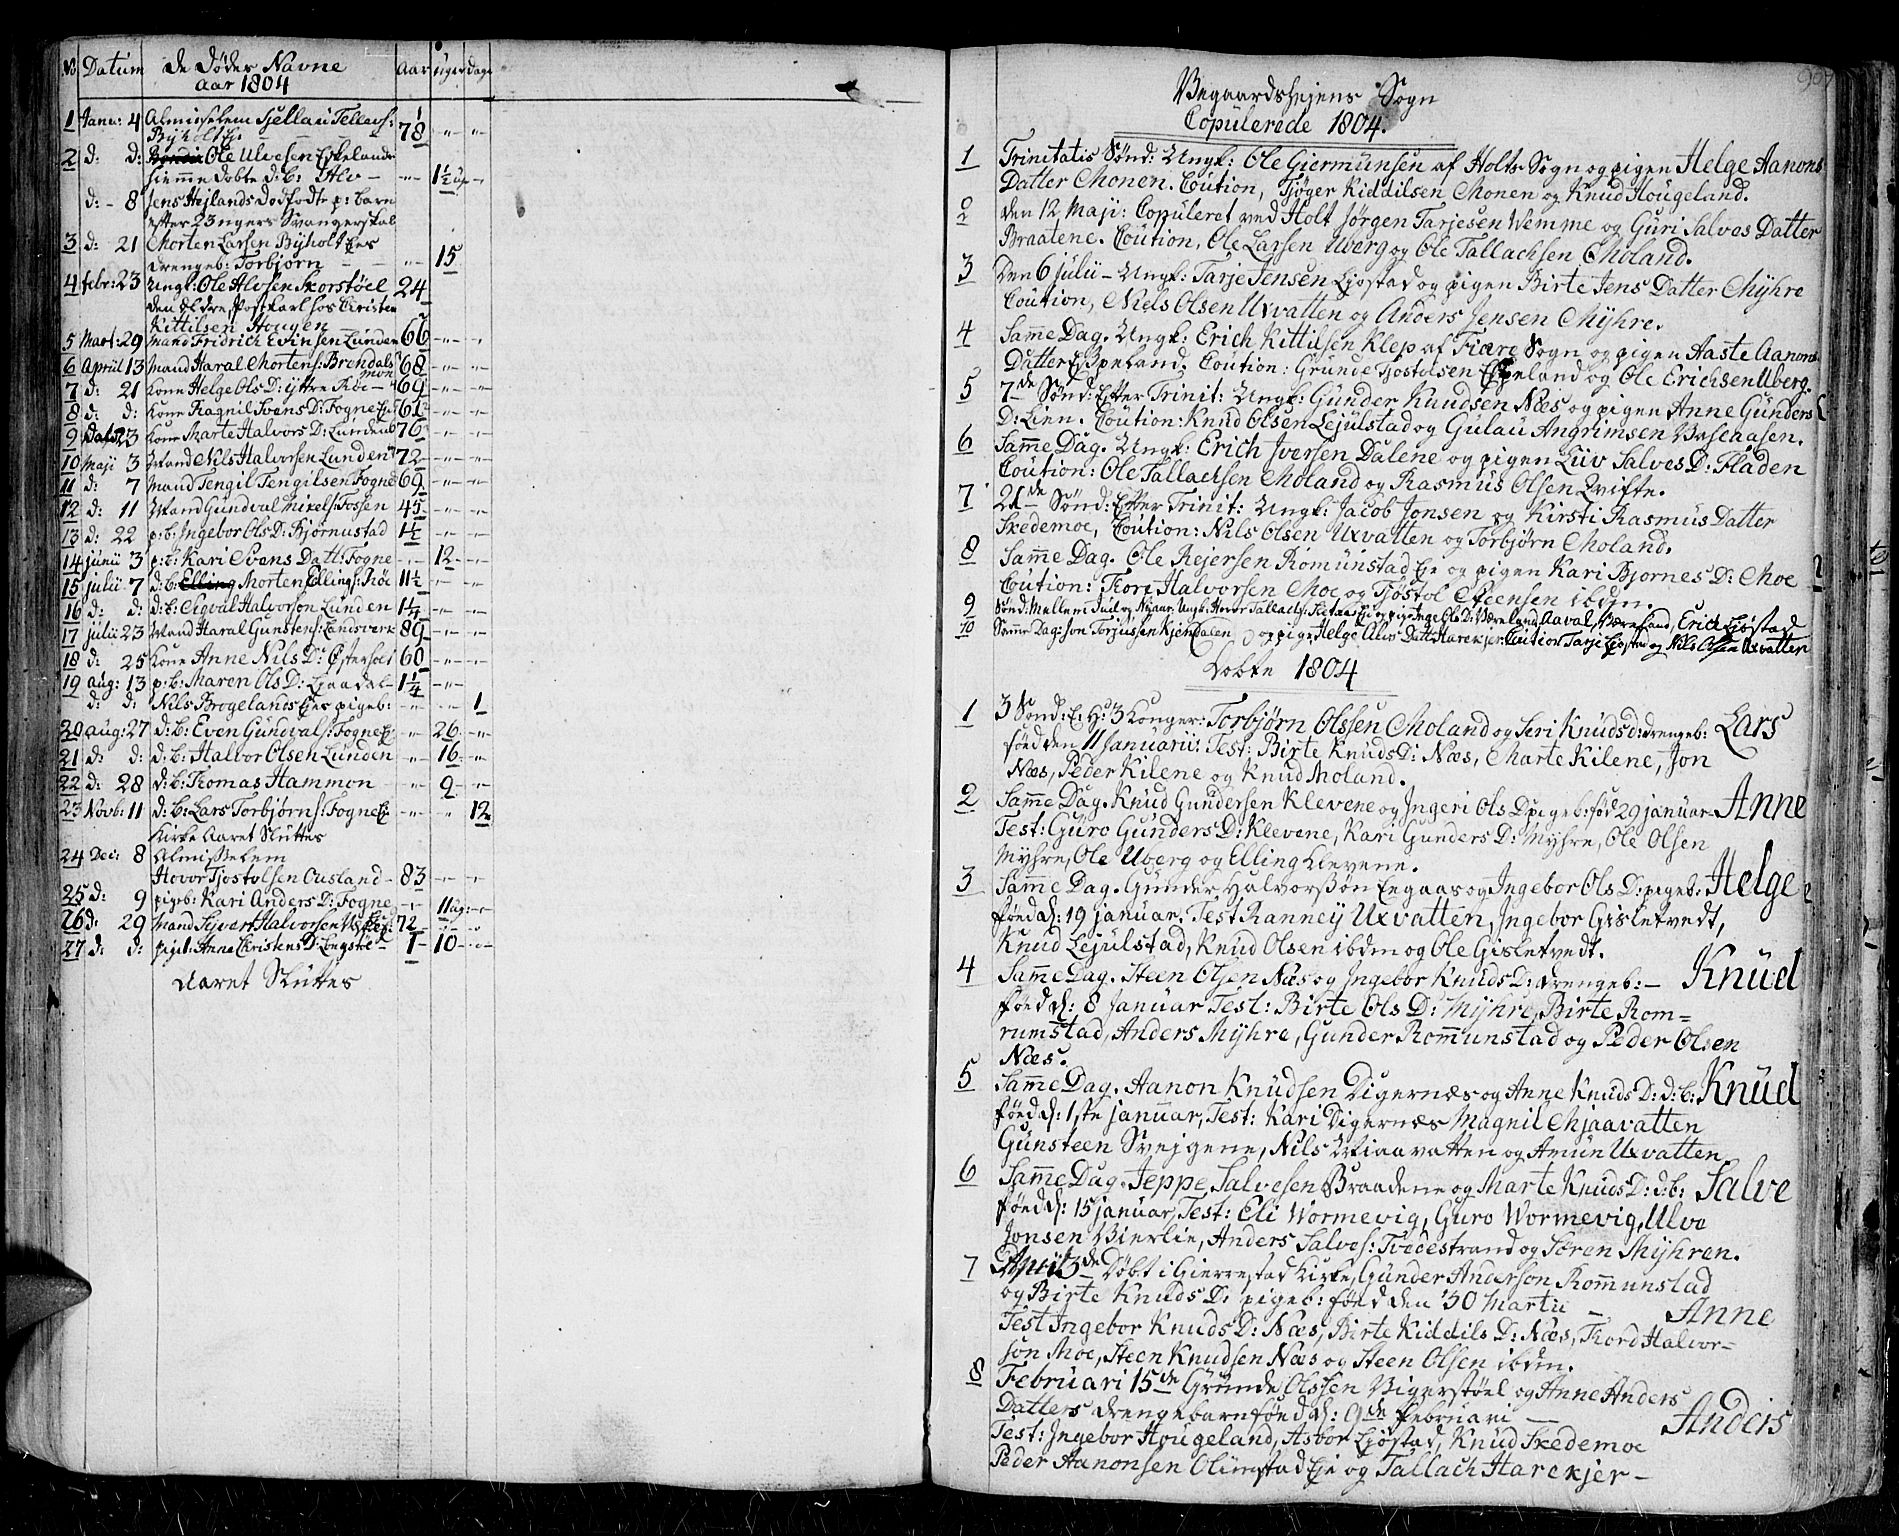 No Datum de Dødes Navne Aar uger dage
aar 1804
1 Janu: 4 Almisselem
Byholt Eje 78 " "
2 d: d: Ole Ulvesen Espelands
hiemme døbte d: b: Alv - " 1½
d: - 8 Jens Hejlands dødfødte p: barn
efter 23 ugers Svangerskab
3 d: 21 Morten Larsen Byholt Ejes
drengeb: Torbjørn - - " 15
4 febr: 23 Ungk: Ole Alvsen Skorstøel 24
den Eldre, Postkarl hos Christen
Kittilsen Hougen
5 Mart: 29 Mand Fridrich Evensen Lunden 66 - " -
6 Apriil 13 Mand Haral Mortens: Brendals 68 - " -
moe
7 d: 21 Kone Helge Ols D: yttre Røe - 69 - " -
8 d: d: Kone Ragnil Svens D: Fogne Eje 61 - " -
9 23 Kone Marte Halvors D: Lunden 76 - " -
10 Maji 3 Mand Nils Halvorsen Lunden 72 - " -
11 d: 7 Mand Tengil Tengilsen Fogne 69 - " -
12 d: 11 Mand Gundval Mikels: Fossen 45 - " -
13 d: 22 p: b: Ingebor Ols D: Bjørnustad 1½
14 junii 3 p: b: Kari Svens Datt: Fogne - " - 12 - " -
15 julii 7 d: b: Elling Morten Ellings: Røe 11½ - " -
16 d: d: d: b: Sigval Halvorson Lunden 1¼ - " -
17 julii 23 Mand Haral Gunstens: Landsverk 89 - " -
18 d: 25 Kone Anne Nils D: Østerholt 60 - " -
19 aug: 13 p: b: Maren Ols D: Ljaadal - 1¼ - " -
d: d: Nils Brogelands Ejes pigeb: - " - 1
20 aug: 27 d: b: Even Gundvals: Fogne Ej - " 26 - " -
21 d: d: d: b: Halvor Olsen Lunden - " 16 - " -
22 d: 28 d: b: Thomas Hammon - " 9 - " -
23 Novb: 11 d: b: Lars Torbjørns: Fogne Ej - " - " 12
Kirke Aaret Sluttes
24 Dec: 8 Almisselem
Hovor Tjostolsen Ousland - 83 - " -
25 d: 9 pigeb: Kari Anders D: Fogne - " - 11 ug: - " -
26 d: 29 Mand Sivert Halvorsen 72 - " -
27 d: d: pige b: Anne Christens D: Engstøe - 1 - 10 - " -
Aaret Sluttes
Vegaardshejens Sogn
Copulerede 1804.
1 Trinitatis Sønd: Ungk: Ole Giermunsen af Holts Sogn og pigen Helge Aanons
Datter Monen. Coution, Tjøger Kiddilsen Monen og Knud Hougeland.
2 den 12 Maji: Copuleret ved Holt Jørgen Tarjesen Wemme og Guri Salvos Datter
Braatene. Coution, Ole Larsen Uberg og Ole Tallachsen Moland.
3 Den 6 julii - Ungk: Tarje Jensen Ljøstad og pigen Birte Jens Datter Myhre
Coution, Niels Olsen Uxvatten og Anders Jensen Myhre.
4 Samme Dag. Ungk: Erich Kittilsen Klep af Fiære Sogn og pigen Aaste Aanons
Datter Espeland. Coution: Grunde Tjostolsen Espeland og Ole Erichsen Uberg.
5 7de Sønd: Efter Trinit: Ungk: Gunder Knudsen Næs og pigen Anne Gunders
D: Lien. Coution: Knud Olsen Lejulstad og Gulau Angrimsen Vaselaasen.
6 Samme Dag. Ungk: Erich Iversen Dalene og pigen Liv Salves D: Fladen
Coution: Ole Tallachsen Moland og Rasmus Olsen Qvifte.
7 21de Sønd: Efter Trinit: Ungk: Jacob Jonsen og Kirsti Rasmus Datter
Skedemoe, Coution: Nils Olsen Uxvatten og Torbjørn Moland.
8 Samme Dag. Ole Rejersen Romunstad Eje og pigen Kari Bjornes D: Moe
Coution: Tore Halvorsen Moe og Tjøstol Steensen ibdm.
9 Sønd: Mellem Juul og Nyaar: Ungk: Hover Tallachs: og pige Inge Ols D: Væreland, Aaval Væreland, Erich Ljøstad
10 Samme Dag: Jon Torjussen Kjendalen og pige Helge Alvs Datt: Harekjer. Coution Tarje Ljøstad og Nils Olsen Uxvatten
Dobte 1804
1 3 Sønd: E: H: 3 Konger: Torbjørn Olssen Moland og Siri Knuds d: drengeb: Lars
føed den 11 Januarii: Test: Birte Knuds D: Næs, Marte Kilene, Jon
Næs, Peder Kilene og Knud Moland.
2 Samme Dag. Knud Gundersen Klevene og Ingeri Ols D pigeb: fød 29 januar - Anne
Test: Guro Gunders D: Klevene, Kari Gunders D: Myhre, Ole Olsen
Myhre, Ole Uberg og Elling Klevene.
3 Samme Dag. Gunder Halvorssøn Engaas og Ingebor Ols D: pigeb: Helge
føed d: 19 januar. Test Ranney Uxvatten, Ingebor Gisletvedt,
Knud Lejulstad, Knud Olsen ibdm og Ole Gisletvedt.
4 Samme Dag. Steen Olsen Næs og Ingebor Knuds D: drengeb: - Knud
føed d: 8 Januar Test: Birte Ols D: Myhre, Birte Rom=
rumstad, Anders Myhre, Gunder Romunstad og Peder Olsen
Næs.
5 Samme Dag. Aanon Knudsen Digernæs og Anne Knuds D: d: b: Knud
føed d: 1ste januar, Test: Kari Digernæs Magnil Mjaavatten
Gunsteen Svejgene, Nils Miaavatten og Amun Uxvatten
6 Samme Dag. Jeppe Salvesen Braadene og Marte Knuds D: d: b: Salve
føed d: 15 januar, Test: Eli Wormevig, Guro Wormevig, Ulve
Jonsen Vierlie, Anders Salves: Tvedestrand og Søren Myhren.
7 April 3de Døbt i Gierrestad Kirke, Gunder Anderson Romunstad
og Birte Knuds D: pigeb: føed den 30 Martii - Anne
Test Ingebor Knuds D: Næs, Birte Kiddils D: Næs, Tord Halvor-
søn Moe, Steen Knudsen Næs og Steen Olsen ibdm.
8 Februari 15de Grunde Olssen Vigerstøel og Anne Anders
Datters drengebarn føed d: 9de Februari - Anders
Test: Ingebor Hougeland, Asbor Ljøstad, Knud Skedemoe
Peder Aanonsen Olimstad Eje og Tallach Harekjer -